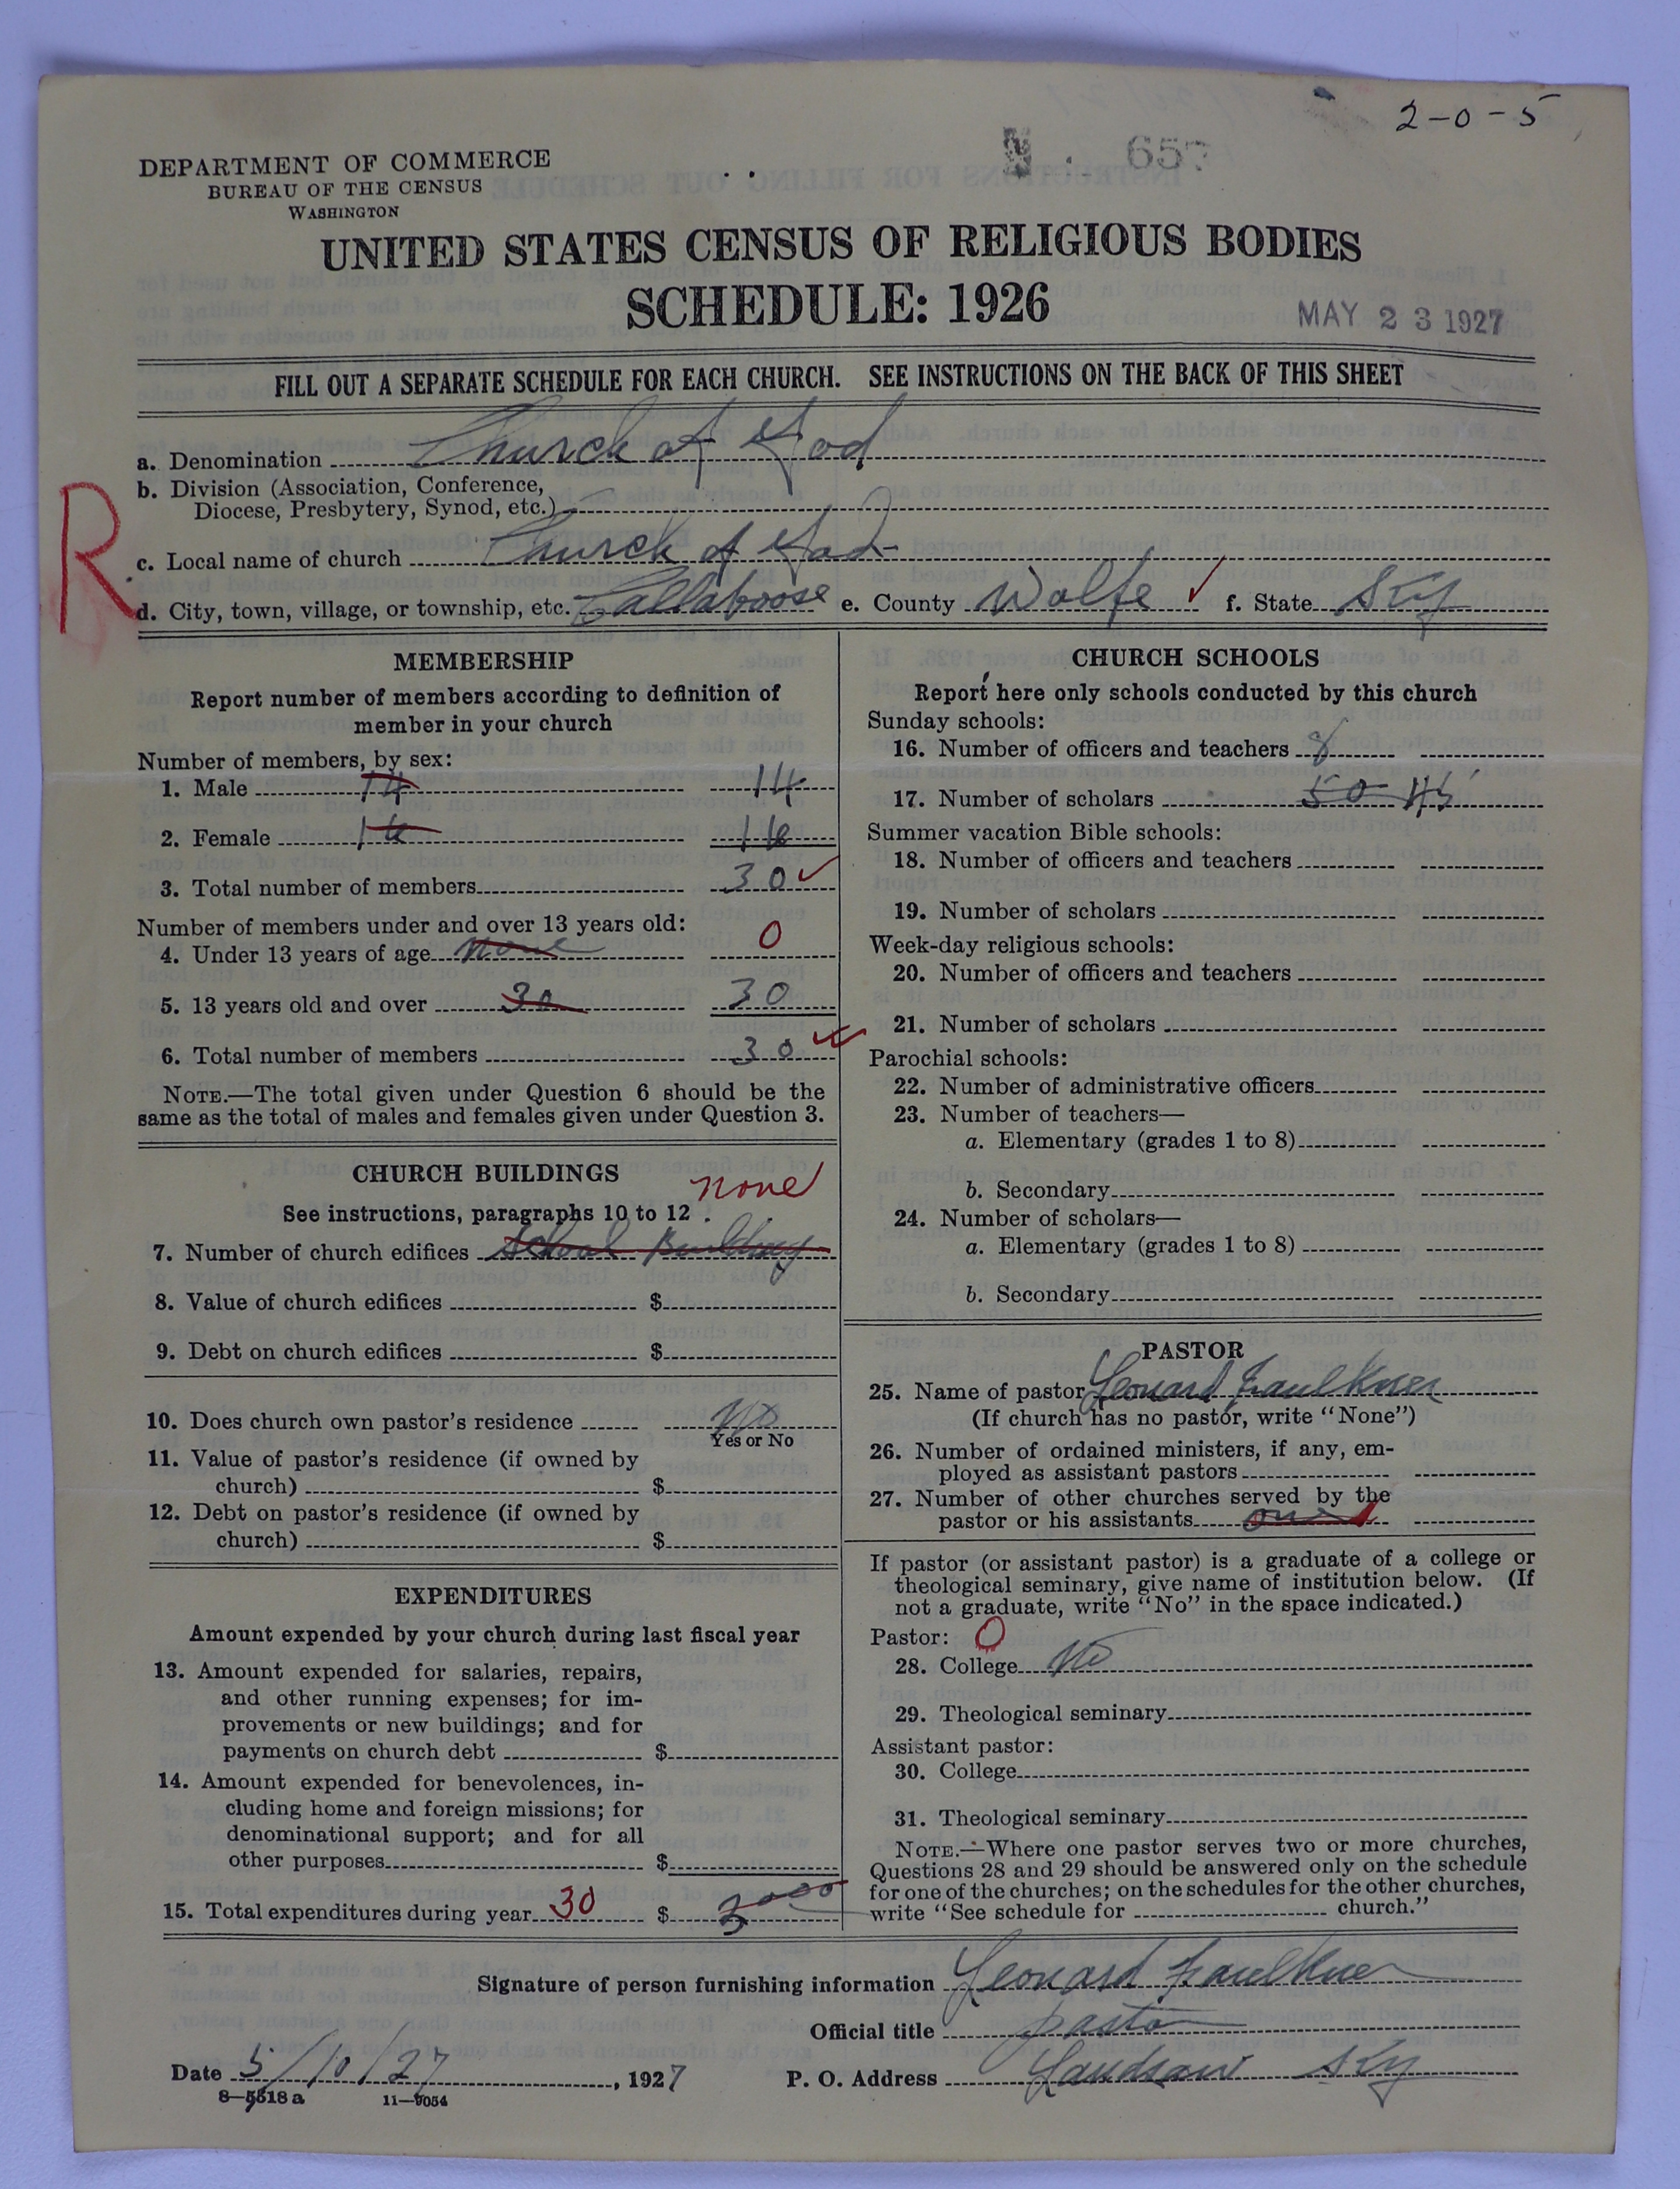 2-0-5
657
DEPARTMENT OF COMMERCE
BUREAU OF THE CENSUS
WASHINGTON
UNITED STATES CENSUS OF RELIGIOUS BODIES
SCHEDULE: 1926
MAY 23 1927
FILL OUT A SEPARATE SCHEDULE FOR EACH CHURCH. SEE INSTRUCTIONS ON THE BACK OF THIS SHEET
R
a. Denomination Church of God
b. Division (Association, Conference,
Diocese, Presbytery, Synod, etc.)
c. Local name of church Church of God
d. City, town, village, or township, etc. Callaboose e. County Wolfe ✓ f. State Ky
MEMBERSHIP
Report number of members according to definition of
member in your church
Number of members, by sex:
1. Male 14 14
2. Female 16 16
3. Total number of members 30 ✓
Number of members under and over 13 years old:
4. Under 13 years of age none 0
5. 13 years old and over 30 30
6. Total number of members 30 ✓
NOTE.—The total given under Question 6 should be the
same as the total of males and females given under Question 3.
CHURCH BUILDINGS
none
See instructions, paragraphs 10 to 12
7. Number of church edifices School Building
8. Value of church edifices $
9. Debt on church edifices $
10. Does church own pastor's residence No
Yes or No
11. Value of pastor's residence (if owned by
church) $
12. Debt on pastor's residence (if owned by
church) $
EXPENDITURES
Amount expended by your church during last fiscal year
13. Amount expended for salaries, repairs,
and other running expenses; for im-
provements or new buildings; and for
payments on church debt $
14. Amount expended for benevolences, in-
cluding home and foreign missions; for
denominational support; and for all
other purposes $
15. Total expenditures during year 30 $ 3000
CHURCH SCHOOLS
Report here only schools conducted by this church
Sunday schools:
16. Number of officers and teachers 8
17. Number of scholars 50 45
Summer vacation Bible schools:
18. Number of officers and teachers
19. Number of scholars
Week-day religious schools:
20. Number of officers and teachers
21. Number of scholars
Parochial schools:
22. Number of administrative officers
23. Number of teachers—
a. Elementary (grades 1 to 8)
b. Secondary
24. Number of scholars—
a. Elementary (grades 1 to 8)
b. Secondary
PASTOR
25. Name of pastor Leonard Faulkner
(If church has no pastor, write "None")
26. Number of ordained ministers, if any, em-
ployed as assistant pastors
27. Number of other churches served by the
pastor or his assistants one 1
If pastor (or assistant pastor) is a graduate of a college or
theological seminary, give name of institution below. (If
not a graduate, write "No" in the space indicated.)
Pastor: 0
28. College No
29. Theological seminary
Assistant pastor:
30. College
31. Theological seminary
NOTE.—Where one pastor serves two or more churches,
Questions 28 and 29 should be answered only on the schedule
for one of the churches; on the schedules for the other churches,
write "See schedule for church."
Signature of person furnishing information Leonard Faulkner
Official title pastor
Date 5/10/27, 1927 P. O. Address Landsaw Ky
8-5518 a 11-9054